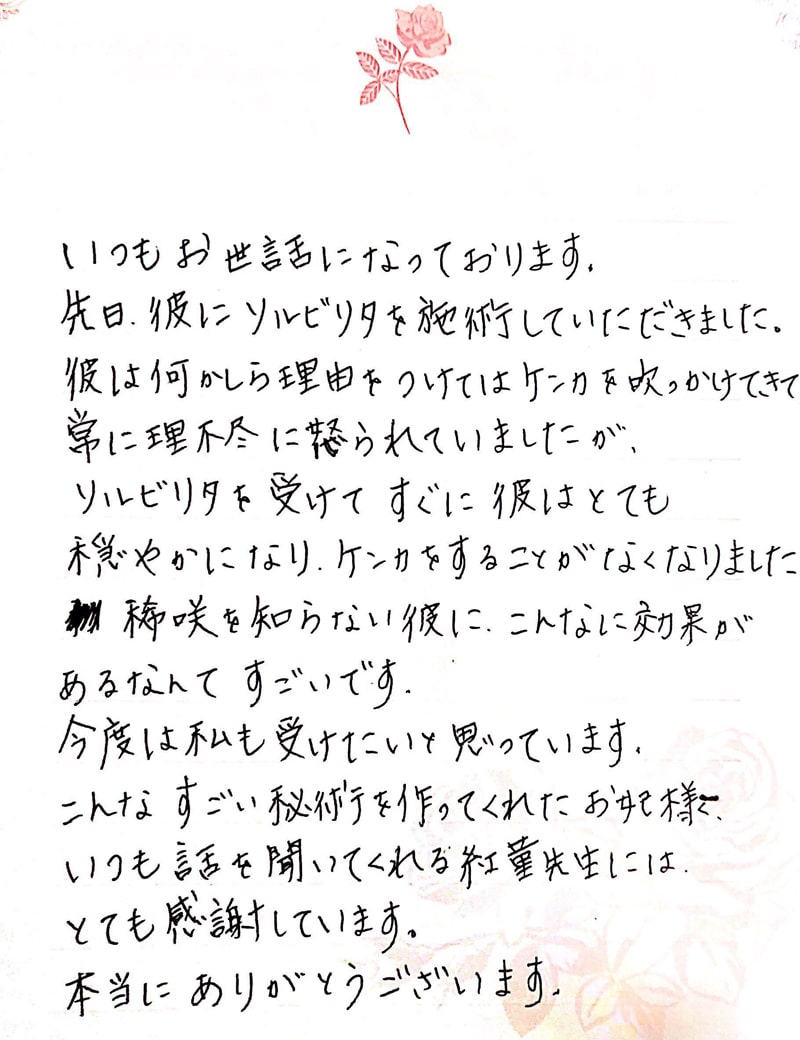 いつもお世話になっております.
先日、彼にソルビリタを施術していただきました。
彼は何かしら理由をつけてはケンカを吹っかけてきて
常に理不尽に怒られていましたが、
ソルビリタを受けてすぐに彼はとても
穏やかになり、ケンカをすることがなくなりました
稀咲を知らない彼に、こんなに効果が
あるなんてすごいです.
今度は私も受けたいと思っています.
こんなすごい秘術を作ってくれたお妃様と、
いつも話を聞いてくれる紅菫先生には、
とても感謝しています。
本当にありがとうございます.